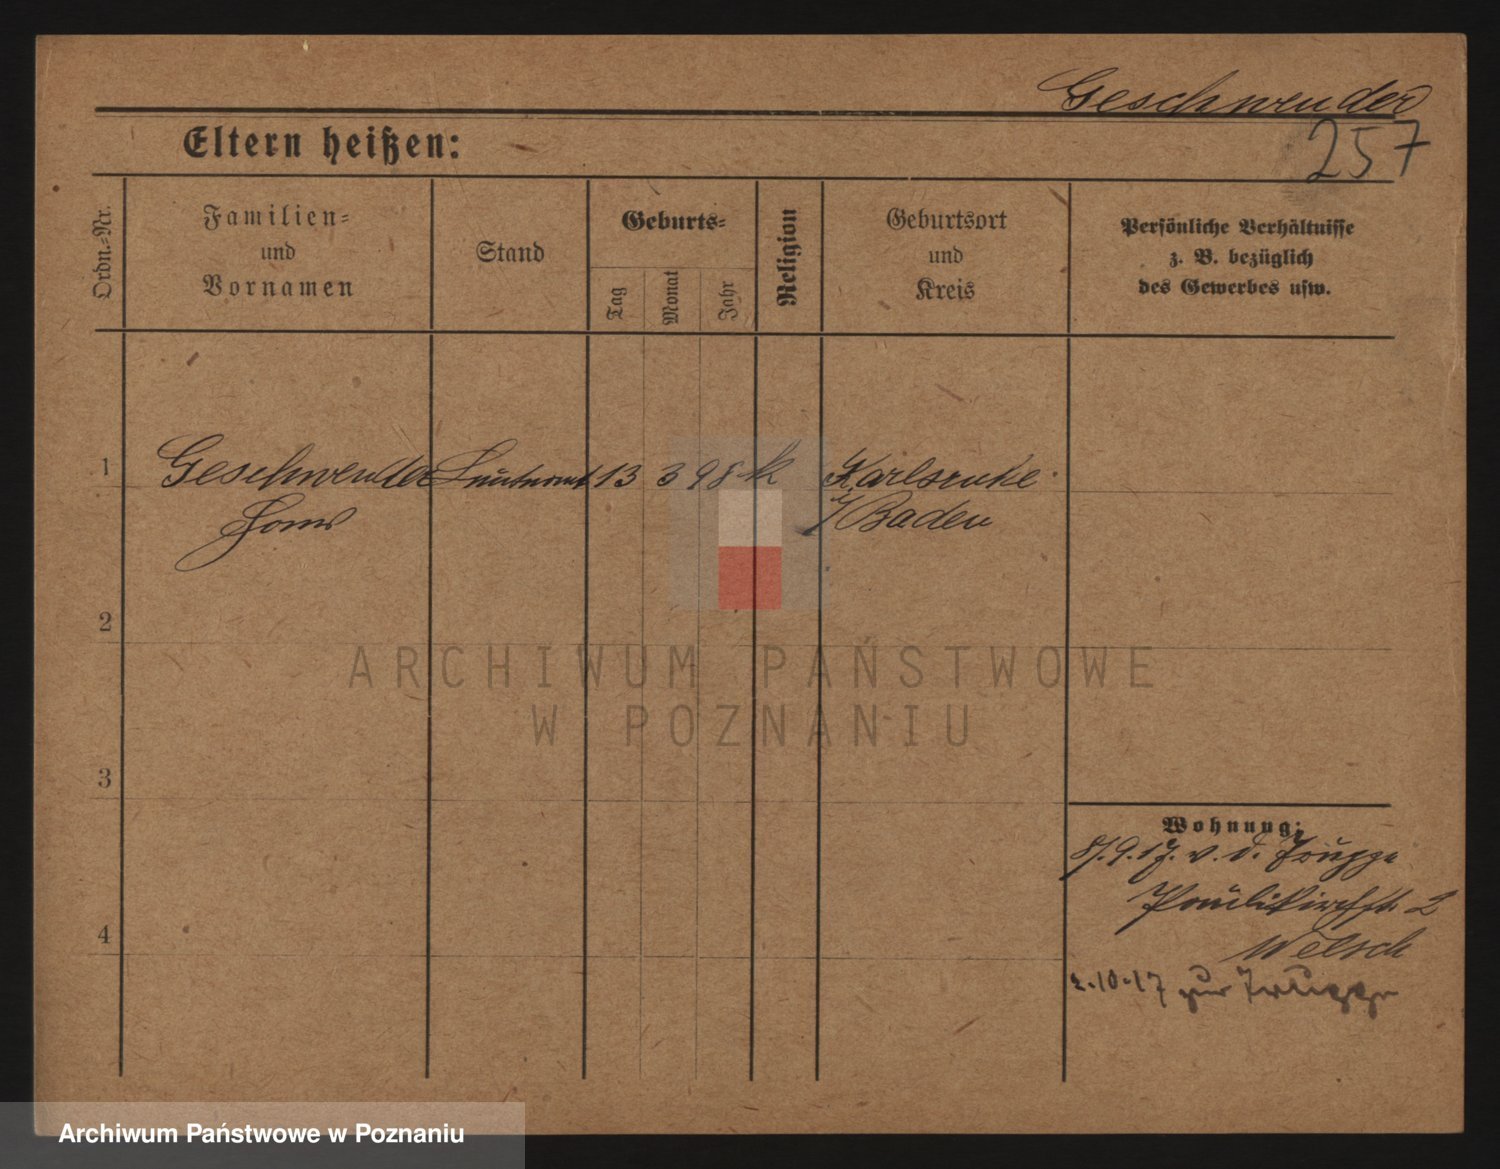 Geschwender
257
Eltern heißen:
Ordn.-Nr.
Familien-
und
Vornamen
Stand
Geburts-
Tag
Monat
Jahr
Religion
Geburtsort
und
Kreis
Persönliche Verhältnisse
z. B. bezüglich
des Gewerbes usw.
1 Geschwender Leutnant 13 3 98 k Karlsruhe
Hans i/Baden
2
3
4
Wohnung:
8/.9.17. v. d. Truppe
Paulikirchstr. 2
Welsch
2.10.17 zur Truppe
ARCHIWUM PAŃSTWOWE
W POZNANIU
Archiwum Państwowe w Poznaniu